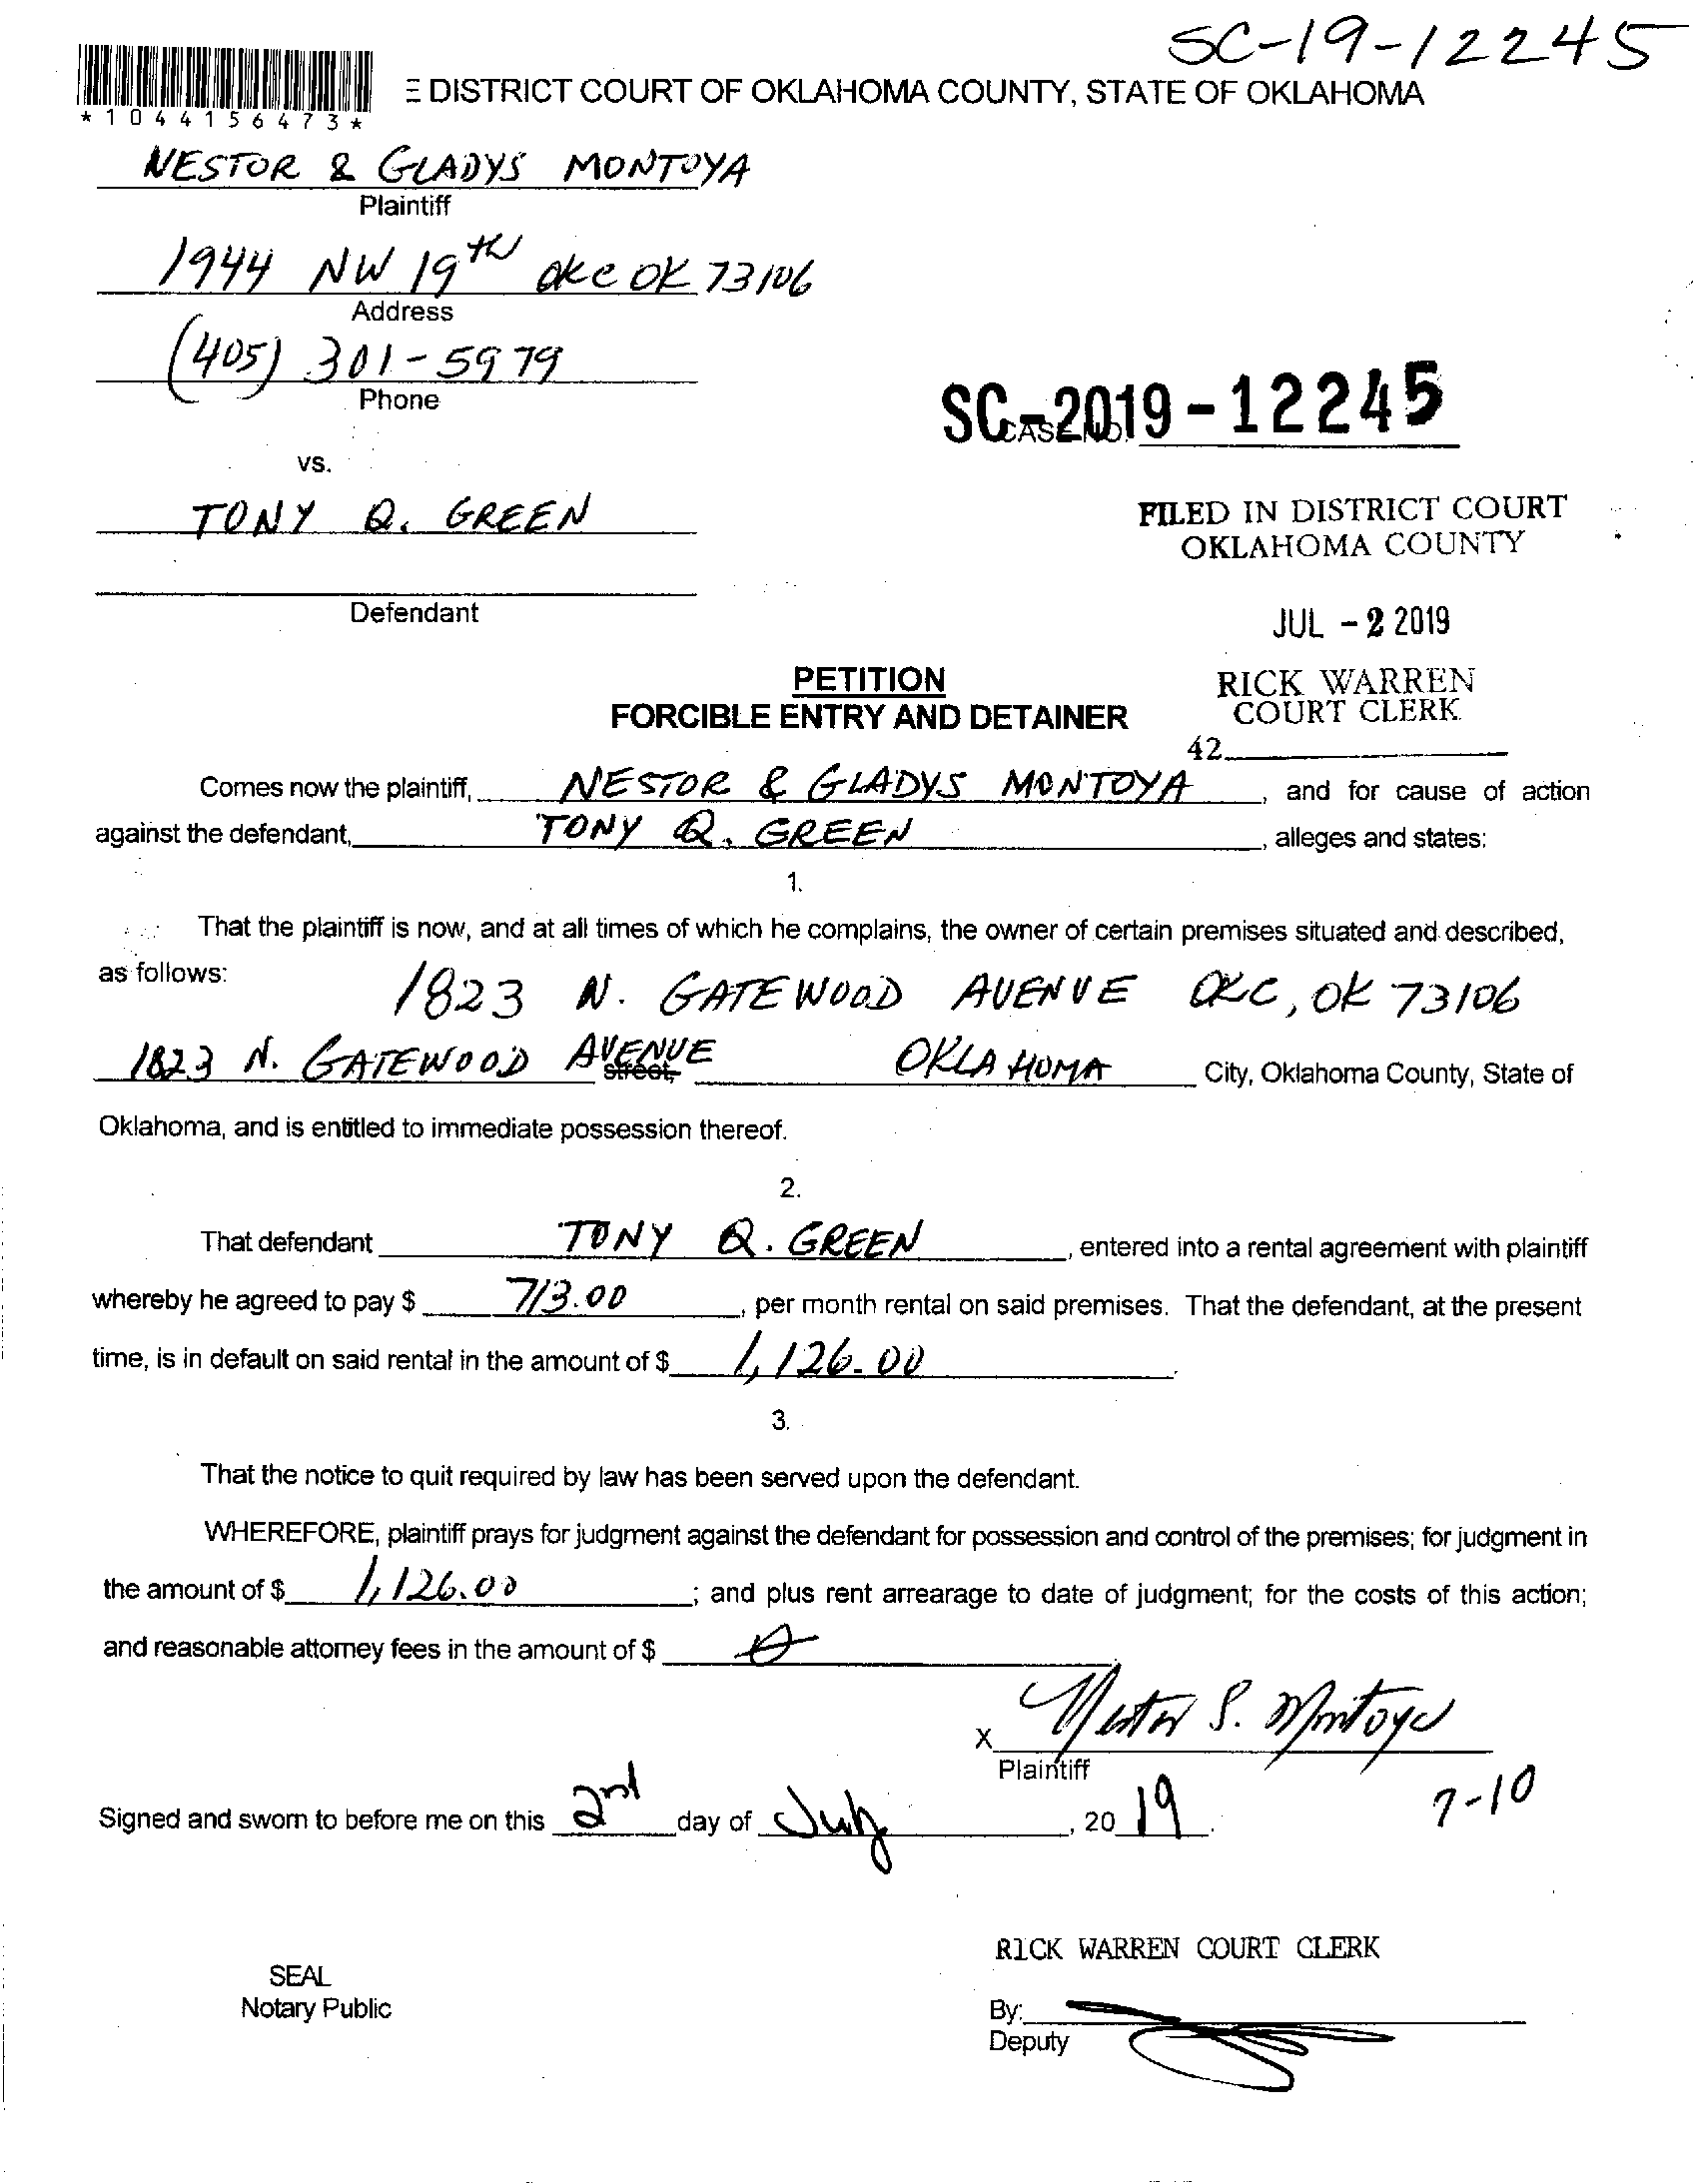 SC-19-12245
E DISTRICT COURT OF OKLAHOMA COUNTY, STATE OF OKLAHOMA
*1044156473*
NESTOR & GLADYS MONTOYA
Plaintiff
1944 NW 19th OKC OK 73106
Address
(405) 301-5979
Phone
SC-2019-12245
CASE NO.
vs.
TONY Q. GREEN
FILED IN DISTRICT COURT
OKLAHOMA COUNTY
Defendant
JUL - 2 2019
PETITION
RICK WARREN
FORCIBLE ENTRY AND DETAINER
COURT CLERK
42
Comes now the plaintiff, NESTOR & GLADYS MONTOYA, and for cause of action
against the defendant, TONY Q. GREEN, alleges and states:
1.
That the plaintiff is now, and at all times of which he complains, the owner of certain premises situated and described,
as follows: 1823 N. GATEWOOD AVENUE OKC, OK 73106
1823 N. GATEWOOD AVENUE street, OKLAHOMA City, Oklahoma County, State of
Oklahoma, and is entitled to immediate possession thereof.
2.
That defendant TONY Q. GREEN, entered into a rental agreement with plaintiff
whereby he agreed to pay $ 713.00, per month rental on said premises. That the defendant, at the present
time, is in default on said rental in the amount of $ 1,126.00.
3.
That the notice to quit required by law has been served upon the defendant.
WHEREFORE, plaintiff prays for judgment against the defendant for possession and control of the premises; for judgment in
the amount of $ 1,126.00; and plus rent arrearage to date of judgment; for the costs of this action;
and reasonable attorney fees in the amount of $ 0.
X Nestor S. Montoya
Plaintiff
7-10
Signed and sworn to before me on this 2nd day of July, 2019.
RICK WARREN COURT CLERK
SEAL
Notary Public
By:
Deputy